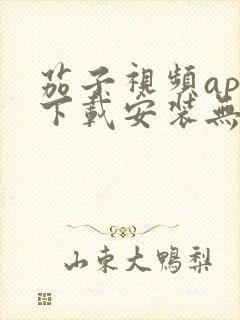 茄子視頻ap
下載安裝無
山東大鴨梨